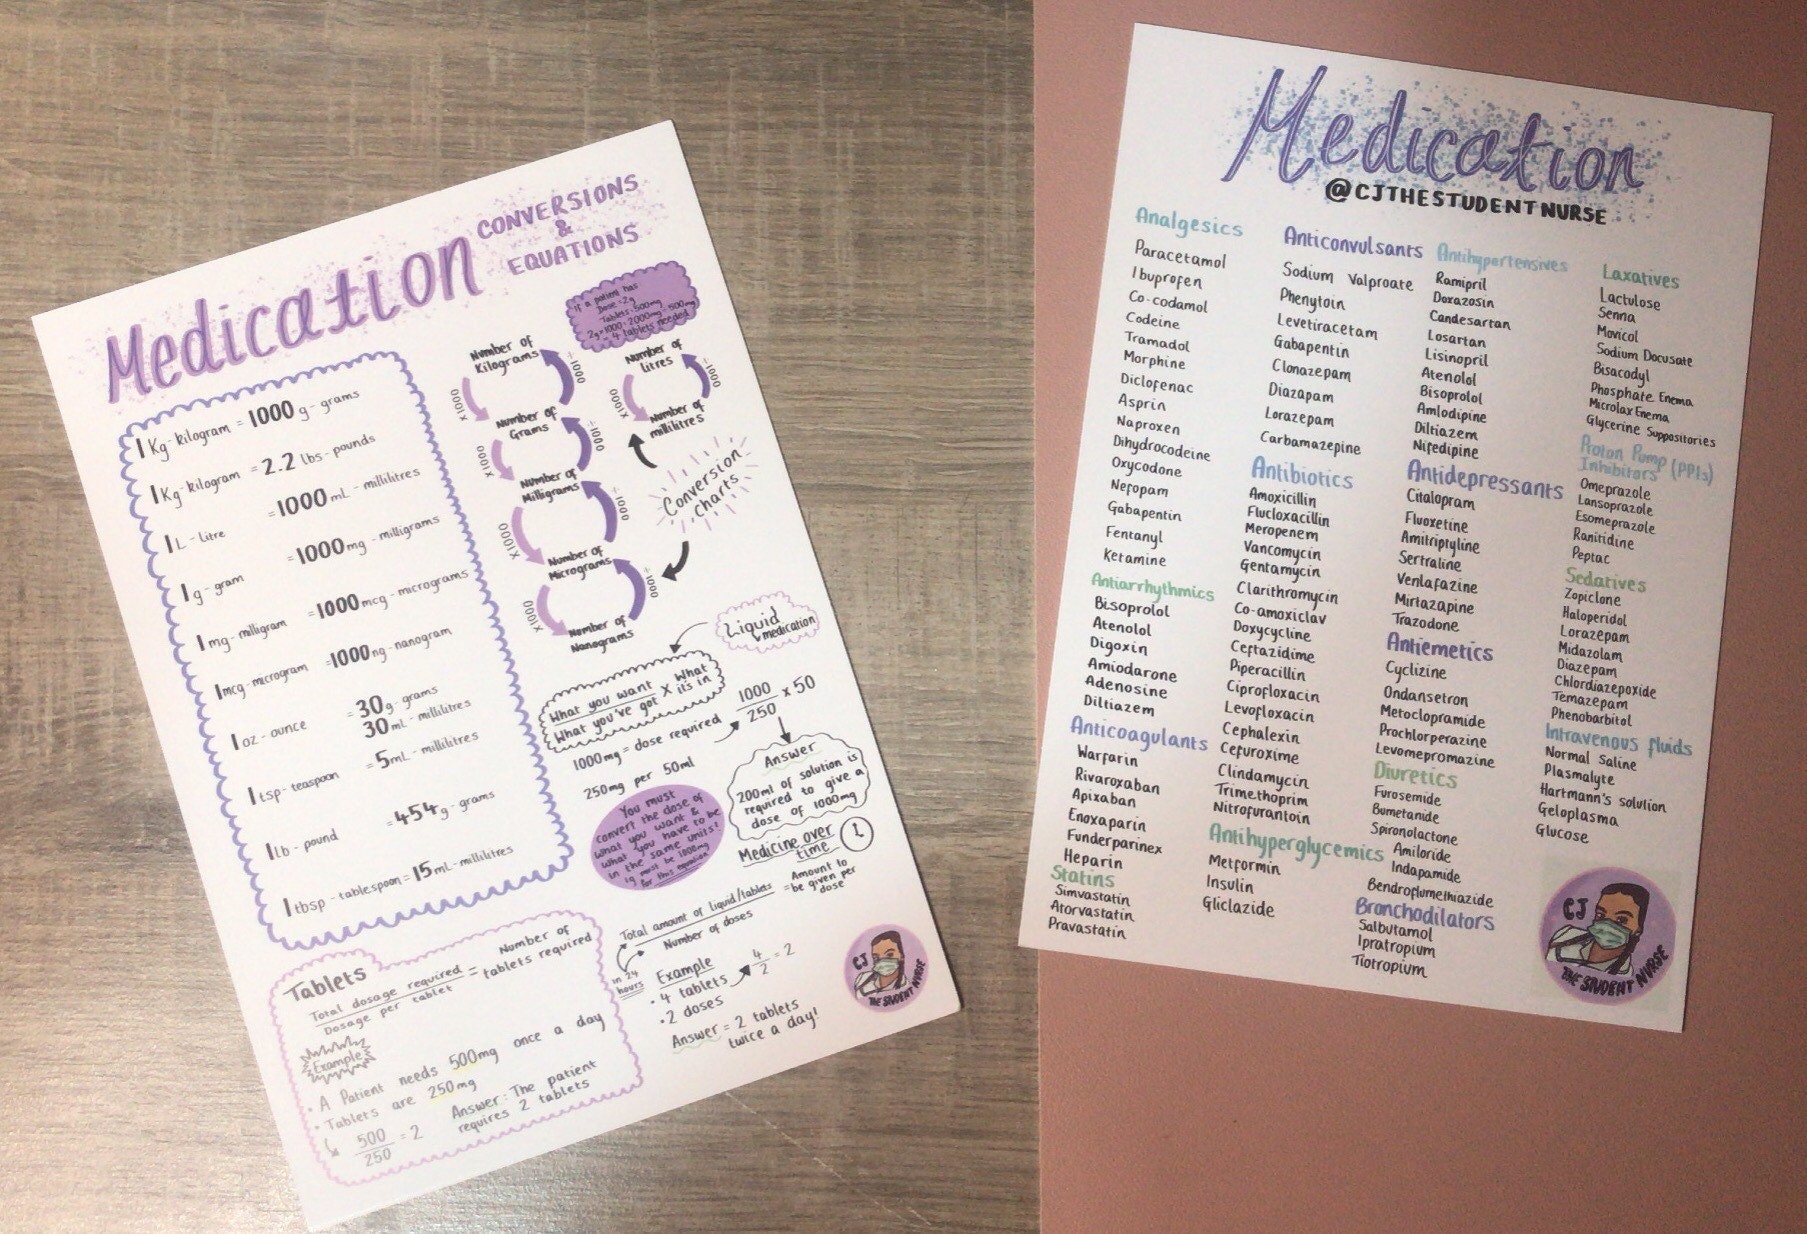 Medication
CONVERSIONS
&
EQUATIONS
1 Kg-kilogram = 1000 g-grams
1 Kg-kilogram = 2.2 lbs-pounds
1 L-litre = 1000 mL-millilitres
1 g-gram = 1000 mg-milligrams
1 mg-milligram = 1000 mcg-micrograms
1 mcg-microgram = 1000 ng-nanogram
1 oz-ounce = 30 g-grams
30 mL-millilitres
1 tsp-teaspoon = 5 mL-millilitres
1 lb-pound = 454 g-grams
1 tbsp-tablespoon = 15 mL-millilitres
If a patient has
Dose = 2g
Tablets = 500mg
2g×1000 = 2000mg ÷ 500mg
= 4 tablets needed
Number of
Kilograms
x1000
÷1000
Number of
Grams
x1000
÷1000
Number of
Milligrams
x1000
÷1000
Number of
Micrograms
x1000
÷1000
Number of
Nanograms
Number of
litres
x1000
÷1000
Number of
millilitres
Conversion
charts
Liquid
medication
What you want x What
What you've got it's in
1000mg = dose required
250mg per 50ml
1000
250
x 50
Answer
200ml of solution is
required to give a
dose of 1000mg
You must
convert the dose of
what you want &
what you have to be
in the same units!
1g must be 1000mg
for this equation
Medicine over
time
Total amount of liquid/tablets
Number of doses
= Amount to
be given per
dose
in 24
hours
Example
• 4 tablets
• 2 doses
4
2
= 2
Answer = 2 tablets
twice a day!
Tablets
Total dosage required
Dosage per tablet
= Number of
tablets required
Example
• A Patient needs 500mg once a day
• Tablets are 250mg
500
250
= 2
Answer: The patient
requires 2 tablets
CJ
THE STUDENT NURSE
Medication
@CJTHESTUDENTNURSE
Analgesics
Paracetamol
Ibuprofen
Co-codamol
Codeine
Tramadol
Morphine
Diclofenac
Asprin
Naproxen
Dihydrocodeine
Oxycodone
Nefopam
Gabapentin
Fentanyl
Ketamine
Antiarrhythmics
Bisoprolol
Atenolol
Digoxin
Amiodarone
Adenosine
Diltiazem
Anticoagulants
Warfarin
Rivaroxaban
Apixaban
Enoxaparin
Funderparinex
Heparin
Statins
Simvastatin
Atorvastatin
Pravastatin
Anticonvulsants
Sodium Valproate
Phenytoin
Levetiracetam
Gabapentin
Clonazepam
Diazapam
Lorazepam
Carbamazepine
Antibiotics
Amoxicillin
Flucloxacillin
Meropenem
Vancomycin
Gentamycin
Clarithromycin
Co-amoxiclav
Doxycycline
Ceftazidime
Piperacillin
Ciprofloxacin
Levofloxacin
Cephalexin
Cefuroxime
Clindamycin
Trimethoprim
Nitrofurantoin
Antihyperglycemics
Metformin
Insulin
Gliclazide
Antihypertensives
Ramipril
Doxazosin
Candesartan
Losartan
Lisinopril
Atenolol
Bisoprolol
Amlodipine
Diltiazem
Nifedipine
Antidepressants
Citalopram
Fluoxetine
Amitriptyline
Sertraline
Venlafazine
Mirtazapine
Trazodone
Antiemetics
Cyclizine
Ondansetron
Metoclopramide
Prochlorperazine
Levomepromazine
Diuretics
Furosemide
Bumetanide
Spironolactone
Amiloride
Indapamide
Bendroflumethiazide
Bronchodilators
Salbutamol
Ipratropium
Tiotropium
Laxatives
Lactulose
Senna
Movicol
Sodium Docusate
Bisacodyl
Phosphate Enema
Microlax Enema
Glycerine Suppositories
Proton Pump (PPIs)
Inhibitors
Omeprazole
Lansoprazole
Esomeprazole
Ranitidine
Peptac
Sedatives
Zopiclone
Haloperidol
Lorazepam
Midazolam
Diazepam
Chlordiazepoxide
Temazepam
Phenobarbitol
Intravenous fluids
Normal Saline
Plasmalyte
Hartmann's solution
Geloplasma
Glucose
CJ
THE STUDENT NURSE